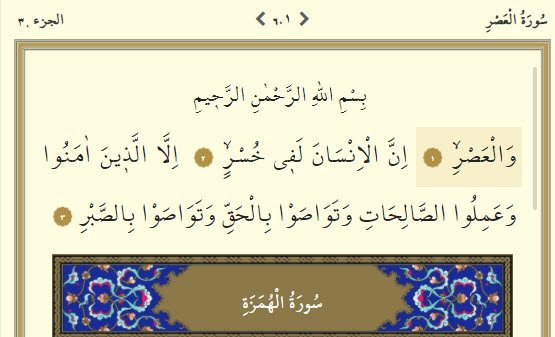 سُورَةُ الْعَصْرِ ٦٠١ الجزء ٣٠
بِسْمِ اللهِ الرَّحْمٰنِ الرَّحٖيمِ
وَالْعَصْرِۙ ١ اِنَّ الْاِنْسَانَ لَفٖى خُسْرٍۙ ٢ اِلَّا الَّذٖينَ اٰمَنُوا
وَعَمِلُوا الصَّالِحَاتِ وَتَوَاصَوْا بِالْحَقِّ وَتَوَاصَوْا بِالصَّبْرِ ٣
سُورَةُ الْهُمَزَةِ